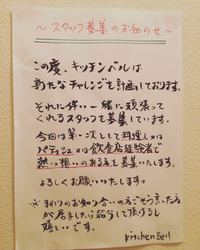 ～スタッフ募集のお知らせ～
この度、キッチンベルは
新たなチャレンジを計画しております。
それに伴い一緒に頑張って
くれるスタッフを募集しています。
今回は第一次として料理人又は
パティシエ又は飲食店経験者で
熱い想いのある方を募集いたします。
よろしくお願いいたします。
※まわりのお知り合いの方でそう言った方
が居ましたら紹介して頂けると
嬉しいです。
kitchen Bell